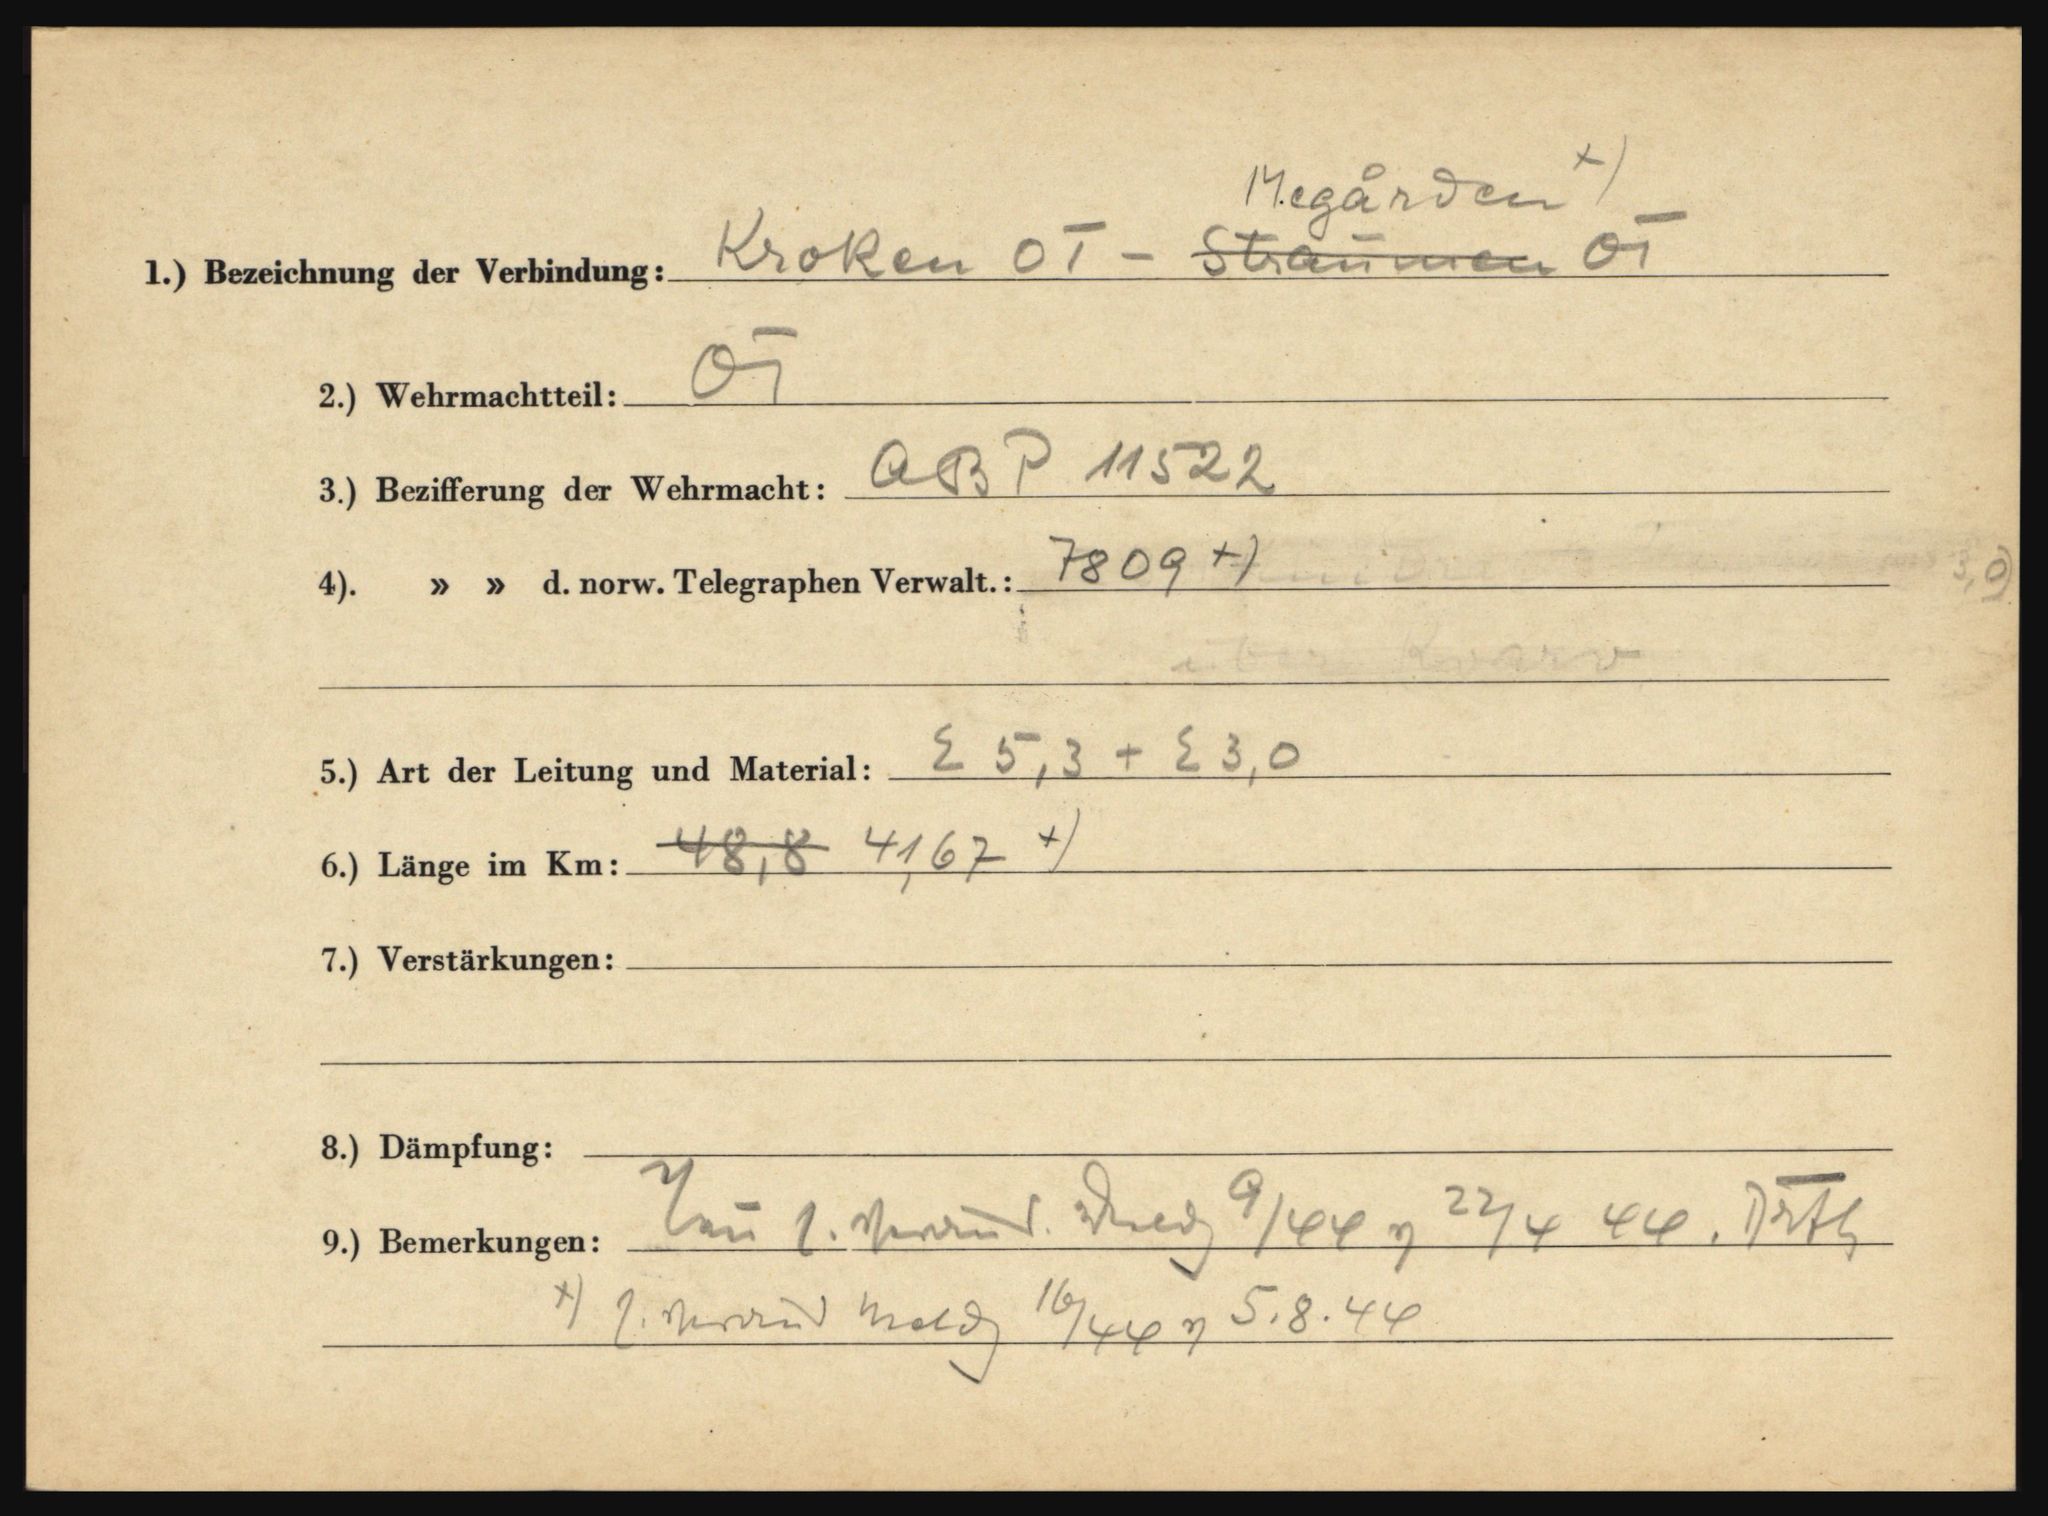 Megården +)
1.) Bezeichnung der Verbindung: Kroken OT - Straumen OT
2.) Wehrmachtteil: OT
3.) Bezifferung der Wehrmacht: ABP 11522
4). » » d. norw. Telegraphen Verwalt.: 7809 +) 3,0)
über Kvarv
5.) Art der Leitung und Material: Σ 5,3 + Σ 3,0
6.) Länge im Km: 48,8 41,67 +)
7.) Verstärkungen:
8.) Dämpfung:
9.) Bemerkungen: Neu l. Veränd. Meldg 9/44 v 22/4 44.
+) l. Veränd Meldg 16/44 v 5.8.44